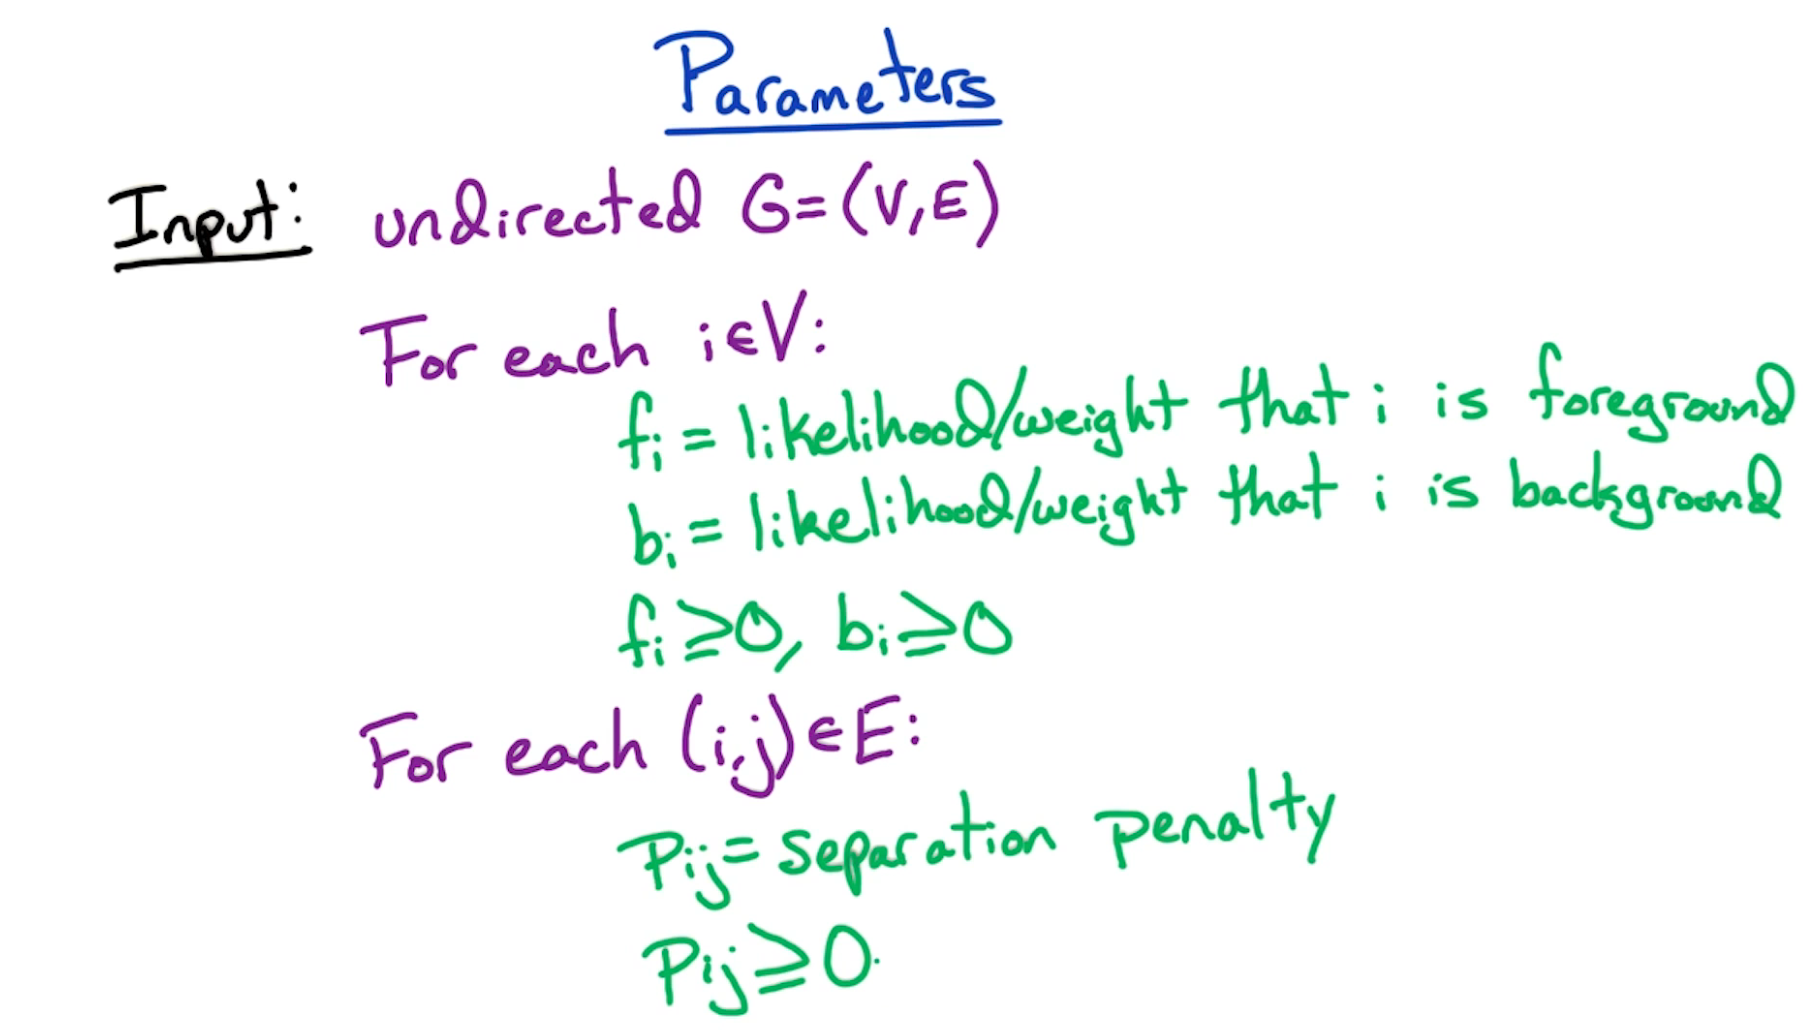 Parameters
Input: undirected G=(V,E)
For each i∈V:
fᵢ = likelihood/weight that i is foreground
bᵢ = likelihood/weight that i is background
fᵢ≥0, bᵢ≥0
For each (i,j)∈E:
Pᵢⱼ= separation penalty
Pᵢⱼ≥0.